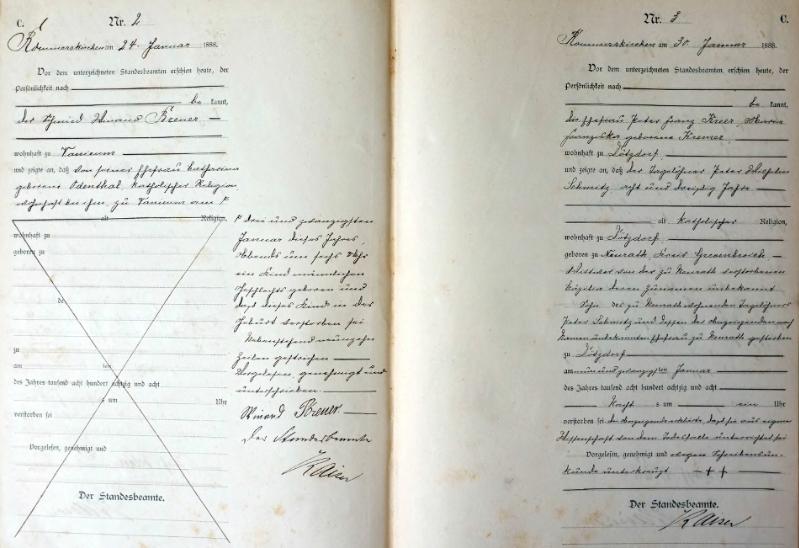 C.
Nr. 2
Rommerskirchen am 24. Januar 1888.
Vor dem unterzeichneten Standesbeamten erschien heute, der
Persönlichkeit nach
be kannt,
der Schmied Winand Brener
wohnhaft zu Vanicum
und zeigte an, daß von seiner Ehefrau Catharina
geborene Odenthal, katholischer Religion
wohnhaft bei ihm zu Vanicum am
alt Religion,
wohnhaft zu
geboren zu
de
zu
am ten
des Jahres tausend acht hundert achtzig und acht
s um Uhr
verstorben sei
Vorgelesen, genehmigt und
Der Standesbeamte.
drei und zwanzigsten
Januar dieses Jahres,
Abends um sechs Uhr
ein Kind männlichen
Geschlechts geboren und
daß dieses Kind in der
Geburt verstorben sei
Nebenstehend neunzehn
Zeilen gestrichen
Vorgelesen, genehmigt und
unterschrieben
Winand Brener
Der Standesbeamte
Kaiser
Nr. 3
C.
Rommerskirchen am 30. Januar 1888.
Vor dem unterzeichneten Standesbeamten erschien heute, der
Persönlichkeit nach
be kannt,
die Ehefrau Peter Franz Maria
Franziska geborene Kremer
wohnhaft zu Götzdorf
und zeigte an, daß der Tagelöhner Peter Wilhelm
Schmitz, acht und dreißig Jahre
alt katholischer Religion,
wohnhaft zu Götzdorf
geboren zu Neurath, Kreis Grevenbroich
von der zu Neurath verstorbenen
deren Zunamen unbekannt
Sohn des zu Neurath wohnenden Tagelöhners
Peter Schmitz und dessen der Anzeigenden nach
Namen unbekannten Ehefrau zu Neurath gestorben
zu Götzdorf
am neun und zwanzigsten Januar
des Jahres tausend acht hundert achtzig und acht
Nacht s um ein Uhr
verstorben sei, die Anzeigende erklärte, daß sie aus eigener
Wissenschaft von dem Todesfalle unterrichtet sei
Vorgelesen, genehmigt und wegen Schreibensun-
kunde unterkreuzt + + +
Der Standesbeamte.
Kaiser